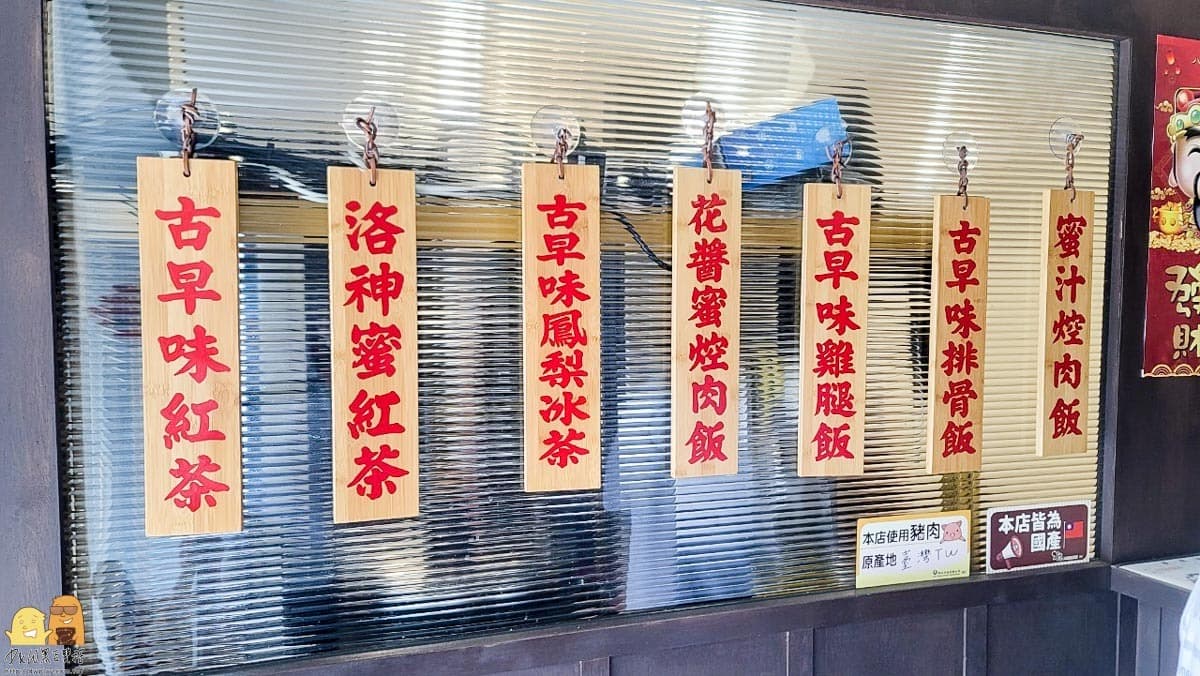 古早味紅茶
洛神蜜紅茶
古早味鳳梨冰茶
花醬蜜焢肉飯
古早味雞腿飯
古早味排骨飯
蜜汁焢肉飯
本店使用豬肉
原產地 臺灣TW
本店皆為
國產
財